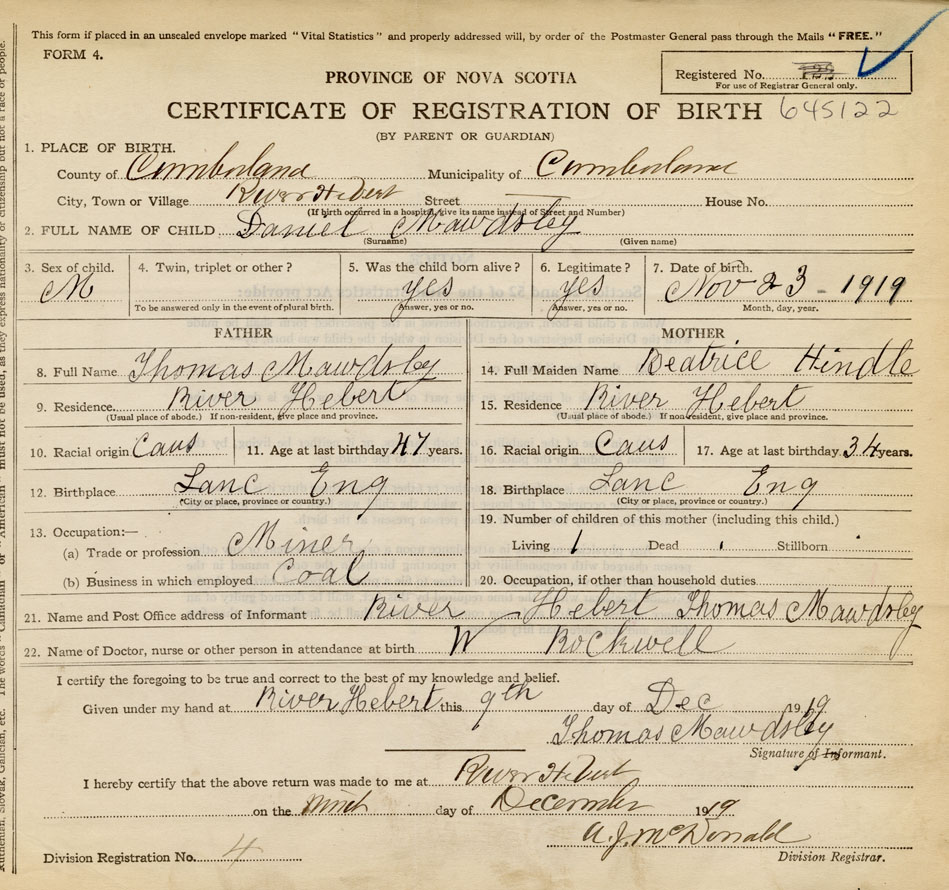 This form if placed in an unscaled envelope marked "Vital Statistics" and properly addressed will, by order of the Postmaster General pass through the Mails "FREE."
FORM 4.
PROVINCE OF NOVA SCOTIA
Registered No.
For use of Registrar General only.
CERTIFICATE OF REGISTRATION OF BIRTH 645122
(BY PARENT OR GUARDIAN)
1. PLACE OF BIRTH.
County of Cumberland Municipality of Cumberland
City, Town or Village River Hebert Street House No.
(If birth occurred in a hospital, give its name instead of Street and Number)
2. FULL NAME OF CHILD Daniel Mawdsley
(Surname) (Given name)
3. Sex of child. 4. Twin, triplet or other? 5. Was the child born alive? 6. Legitimate? 7. Date of birth.
M yes yes Nov 23 - 1919
To be answered only in the event of plural birth. Answer, yes or no. Answer, yes or no. Month, day, year.
FATHER
8. Full Name Thomas Mawdsley
9. Residence River Hebert
(Usual place of abode.) If non-resident, give place and province.
10. Racial origin Caus 11. Age at last birthday 47 years.
12. Birthplace Lanc Eng
(City or place, province or country.)
13. Occupation:—
(a) Trade or profession Miner
(b) Business in which employed Coal
MOTHER
14. Full Maiden Name Beatrice Hindle
15. Residence River Hebert
(Usual place of abode.) If non resident, give place and province.
16. Racial origin Caus 17. Age at last birthday 34 years.
18. Birthplace Lanc Eng
(City or place, province or country.)
19. Number of children of this mother (including this child.)
Living 1 Dead Stillborn
20. Occupation, if other than household duties
21. Name and Post Office address of Informant River Hebert Thomas Mawdsley
22. Name of Doctor, nurse or other person in attendance at birth W Rockwell
I certify the foregoing to be true and correct to the best of my knowledge and belief.
Given under my hand at River Hebert this 9th day of Dec 1919
Thomas Mawdsley
Signature of Informant.
I hereby certify that the above return was made to me at River Hebert
on the ninth day of December 1919
A. J. McDonald
Division Registrar.
Division Registration No. 4